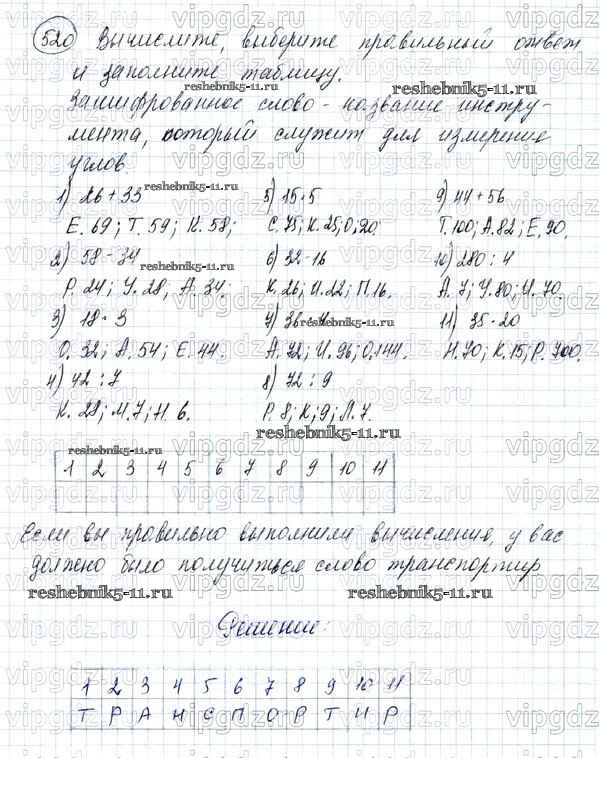 520 Вычислите, выберите правильный ответ
и заполните таблицу.
Зашифрованное слово - название инстру-
мента, который служит для измерения
углов.
1) 26 + 33
Е. 69; Т. 59; К. 58;
2) 58 - 34
Р. 24; У. 28; А. 34.
3) 18 · 3
О. 32; А. 54; Е. 44.
4) 42 : 7
К. 28; М. 7; Н. 6.
5) 15 · 5
С. 75; К. 25; О. 20
6) 32 - 16
К. 26; И. 22; П. 16.
7) 36 · 4
А. 72; И. 96; О. 144.
8) 72 : 9
Р. 8; К. 9; Л. 7.
9) 44 + 56
Т. 100; А. 82; Е. 90.
10) 280 : 4
А. 7; У. 80; И. 70.
11) 35 · 20
Н. 70; К. 15; Р. 700.
1 2 3 4 5 6 7 8 9 10 11
Если вы правильно выполнили вычисления, у вас
должно было получиться слово транспортир
Решение:
1 2 3 4 5 6 7 8 9 10 11
Т Р А Н С П О Р Т И Р
reshebnik5-11.ru
vipgdz.ru